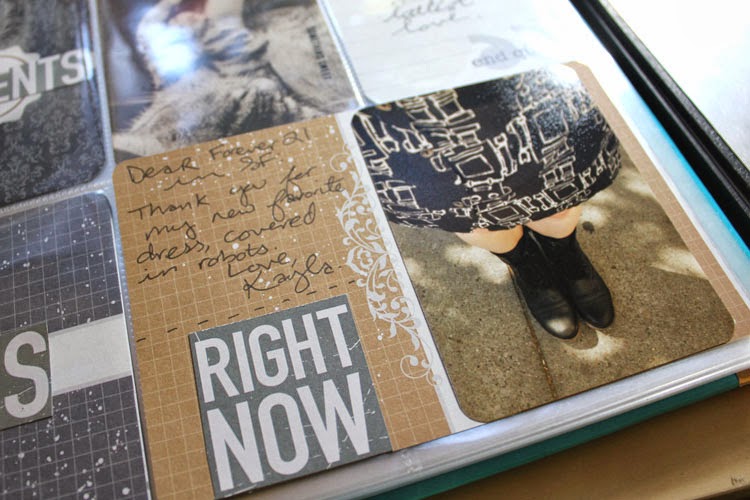 ENTS
latest
love.
end of
Dear Forever 21
in SF
Thank you for
my new favorite
dress, covered
in robots.
Love,
Kayla.
RIGHT
NOW
S